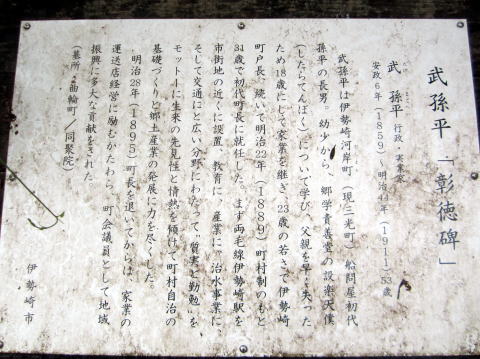 武孫平「彰徳碑」
武 孫平 行政、実業家
安政6年(1859)~明治44年(1911)53歳
武孫平は伊勢崎河岸町(現三光町)船問屋初代
孫平の長男。幼少から、郷学責善堂の設楽天僕
(したらてんぼく)について学び、父親を早く失った
ため18歳にして家業を継ぎ、23歳の若さで伊勢崎
町戸長、続いて明治22年(1889)町村制のもと
31歳で初代町長に就任した。まず両毛線伊勢崎駅を
市街地の近くに設置、教育に、産業に、治水事業に、
そして交通にと広い分野にわたって"質実と勤勉"を
モットーに生来の先見性と情熱を傾けて町村自治の
基礎づくりと郷土産業の発展に力を尽くした。
明治28年(1895)町長を退いてからは、家業の
運送店経営に励むかたわら、町会議員として地域
振興に多大な貢献をされた
(墓所 曲輪町/同聚院)
伊勢崎市